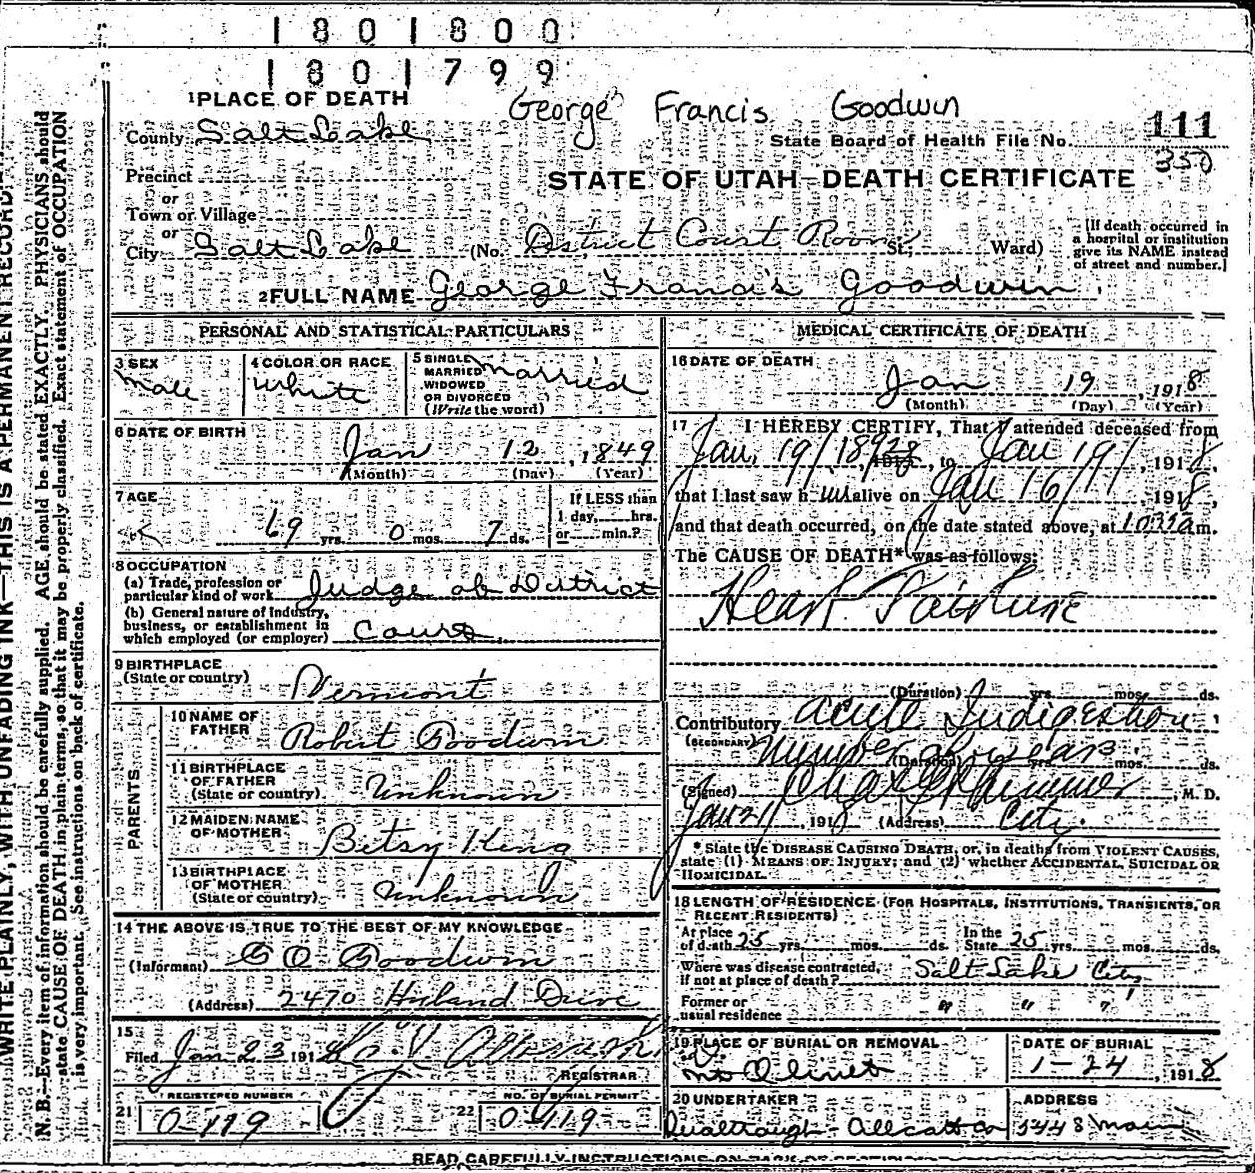 1801800
1801799
George Francis Goodwin
1 PLACE OF DEATH
County Salt Lake
State Board of Health File No. 111
350
Precinct
or
Town or Village
or
City Salt Lake
STATE OF UTAH—DEATH CERTIFICATE
(No. District Court Room St; Ward)
[If death occurred in
a hospital or institution
give its NAME instead
of street and number.]
2 FULL NAME George Francis Goodwin.
PERSONAL AND STATISTICAL PARTICULARS
3 SEX
Male
4 COLOR OR RACE
White
5 SINGLE
MARRIED
WIDOWED
OR DIVORCED
(Write the word)
Married
6 DATE OF BIRTH
Jan 12, 1849
(Month) (Day) (Year)
7 AGE
69 yrs. 0 mos. 7 ds.
If LESS than
1 day, hrs.
or min.?
8 OCCUPATION
(a) Trade, profession or
particular kind of work Judge of District
(b) General nature of Industry,
business, or establishment in
which employed (or employer) Court
9 BIRTHPLACE
(State or country) Vermont
PARENTS
10 NAME OF
FATHER Robert Goodwin
11 BIRTHPLACE
OF FATHER
(State or country) Unknown
12 MAIDEN NAME
OF MOTHER Betsy King
13 BIRTHPLACE
OF MOTHER
(State or country) Unknown
14 THE ABOVE IS TRUE TO THE BEST OF MY KNOWLEDGE
(Informant) Goodwin
(Address) 2470 Hyland Drive
15
Filed Jan 23 191
REGISTRAR
REGISTERED NUMBER
21 0-119
NO. OF BURIAL PERMIT
22 0-119
MEDICAL CERTIFICATE OF DEATH
16 DATE OF DEATH
Jan 19, 1918
(Month) (Day) (Year)
17 I HEREBY CERTIFY, That I attended deceased from
Jan. 19/ to Jan 19/, 1918,
that I last saw him alive on Jan 16/, 1918,
and that death occurred, on the date stated above, at m.
The CAUSE OF DEATH* was as follows:
Heart Failure
(Duration) yrs. mos. ds.
Contributory Acute Indigestion
(SECONDARY) Number of years
(Duration) yrs. mos. ds.
(Signed) M. D.
Jan 21/, 1918 (Address) City.
* State the DISEASE CAUSING DEATH, or, in deaths from VIOLENT CAUSES,
state (1) MEANS OF INJURY; and (2) whether ACCIDENTAL, SUICIDAL OR
HOMICIDAL.
18 LENGTH OF RESIDENCE (FOR HOSPITALS, INSTITUTIONS, TRANSIENTS, OR
RECENT RESIDENTS)
At place
of death 25 yrs. mos. ds. In the
State 25 yrs. mos. ds.
Where was disease contracted,
if not at place of death? Salt Lake City
Former or
usual residence " " "
19 PLACE OF BURIAL OR REMOVAL
Mt Olivet
DATE OF BURIAL
1-24, 1918
20 UNDERTAKER
ADDRESS
Main
READ CAREFULLY INSTRUCTIONS ON BACK OF CERTIFICATE
WRITE PLAINLY, WITH UNFADING INK—THIS IS A PERMANENT RECORD
N. B.—Every item of information should be carefully supplied. AGE should be stated EXACTLY. PHYSICIANS should
state CAUSE OF DEATH in plain terms, so that it may be properly classified. Exact statement of OCCUPATION
is very important. See instructions on back of certificate.